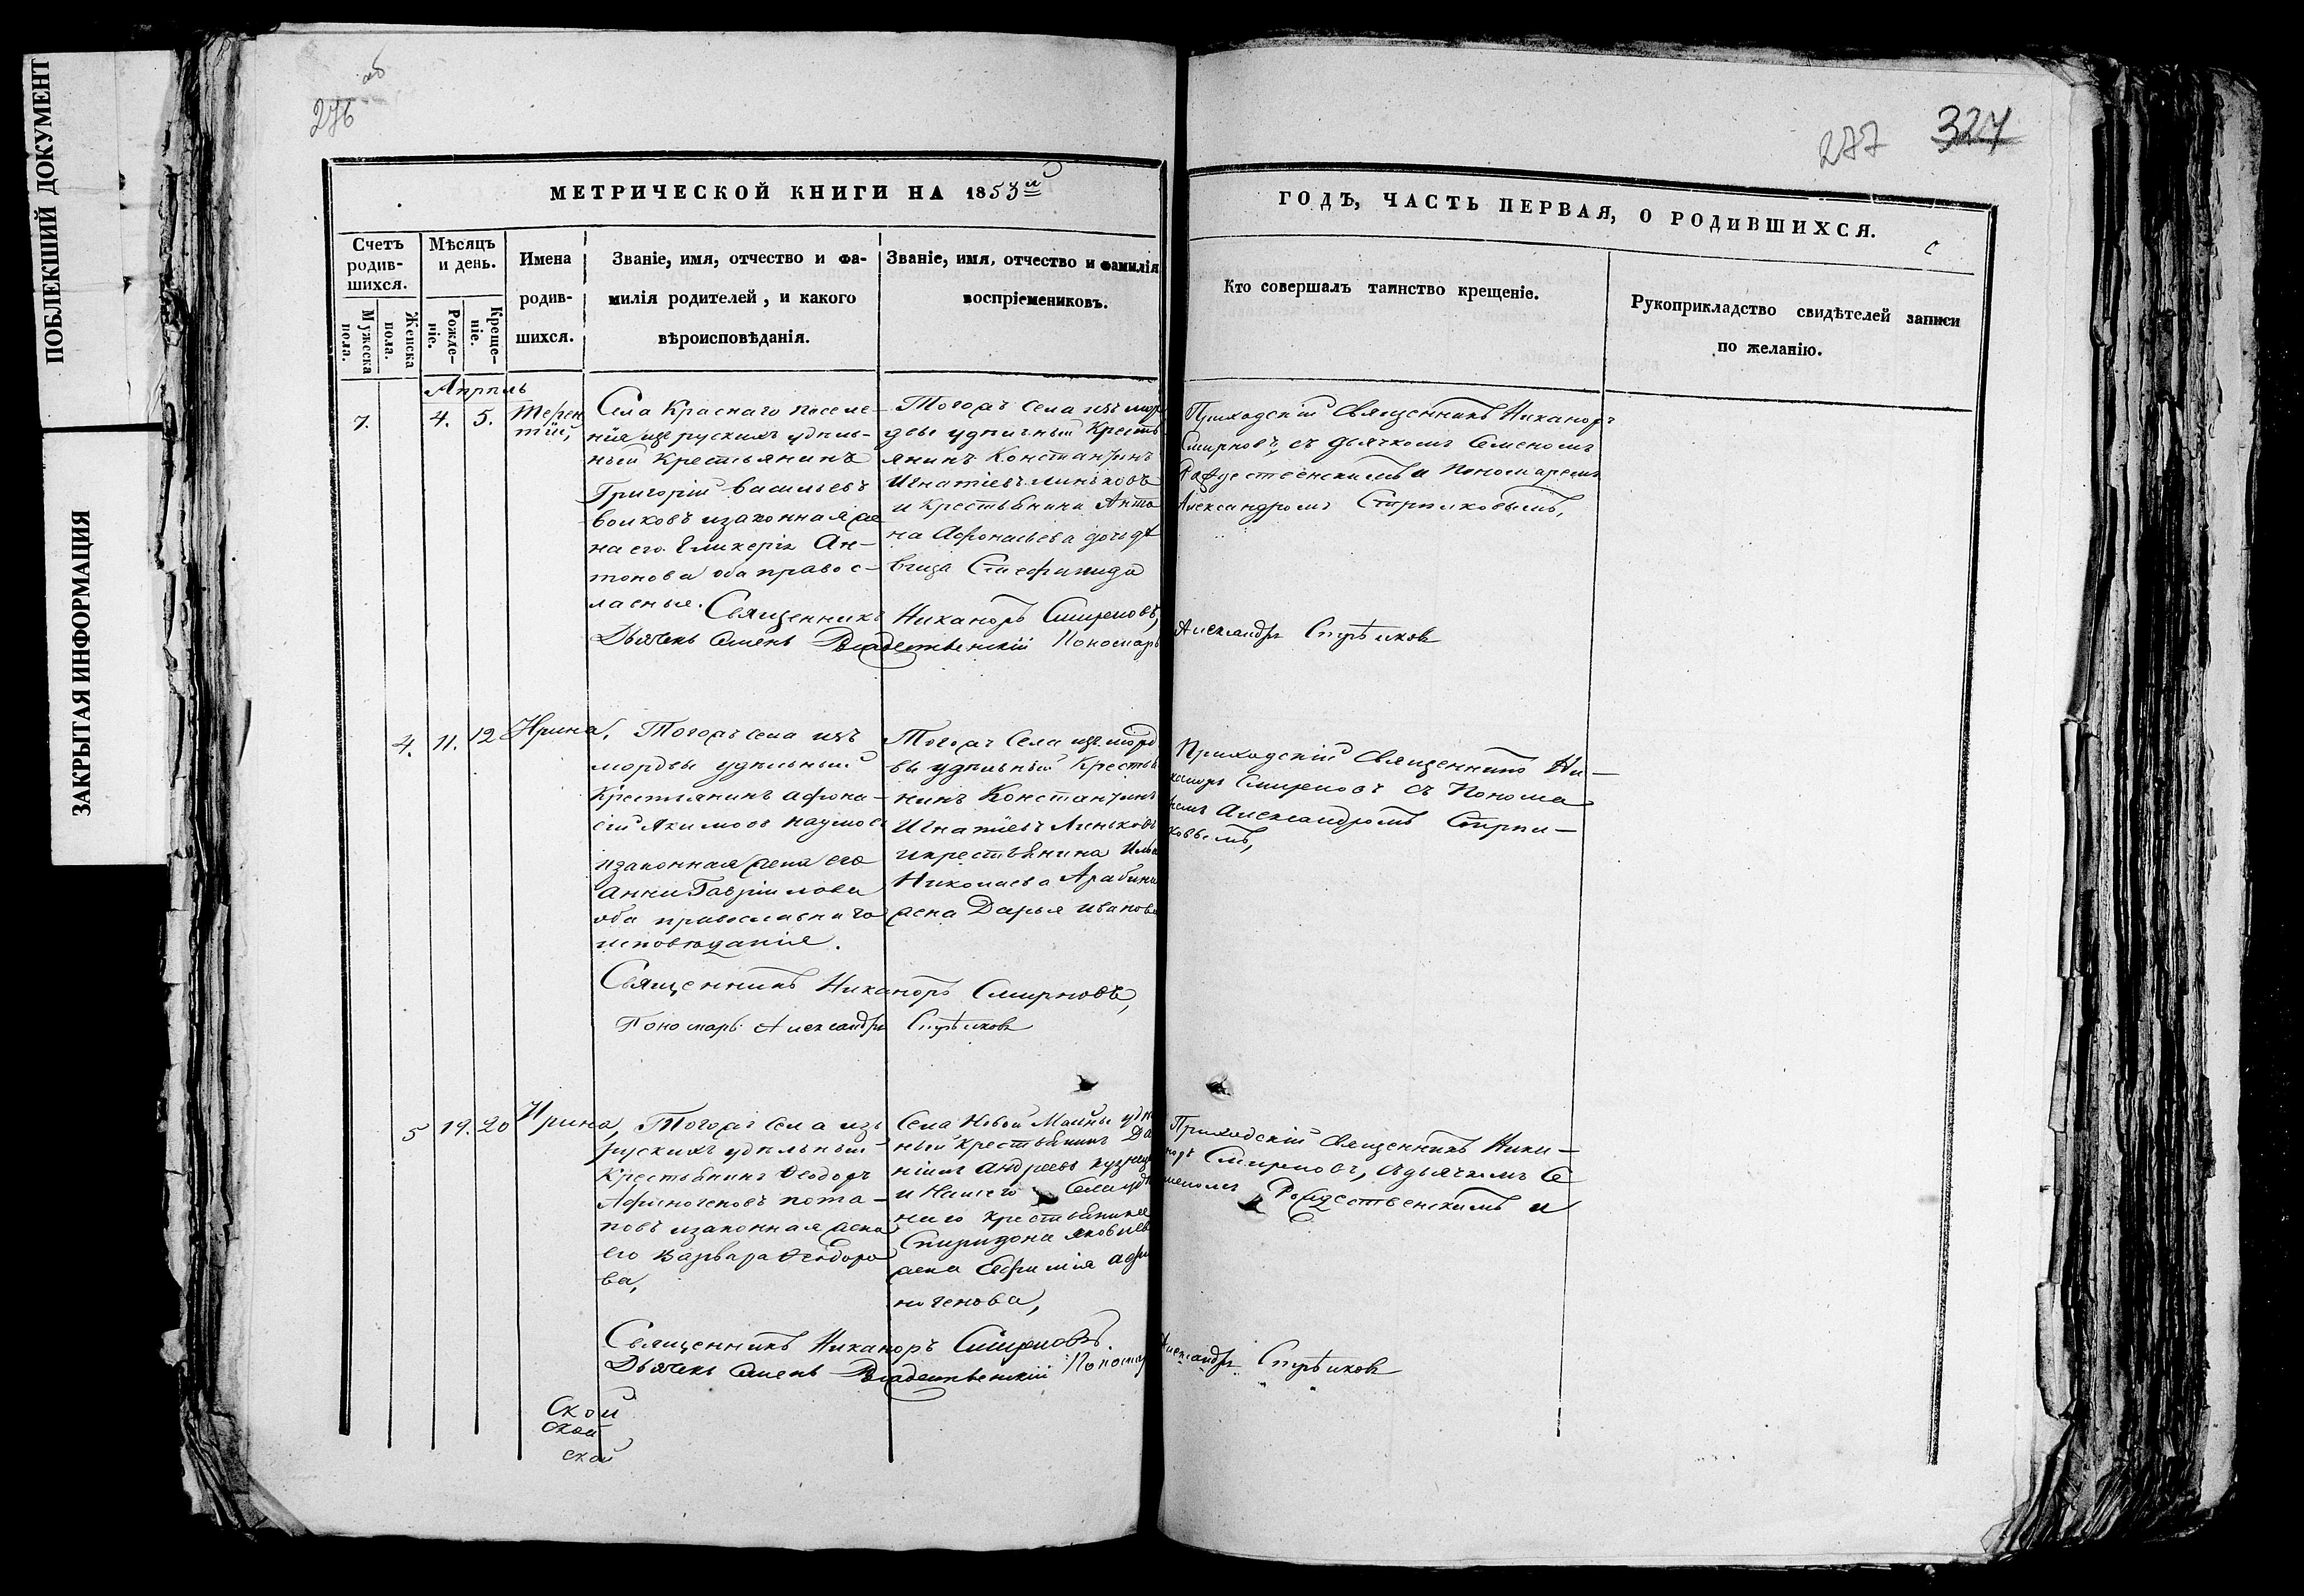 ПОБЛЕКШИЙ ДОКУМЕНТ
ЗАКРЫТАЯ ИНФОРМАЦИЯ
об
276
277
327
МЕТРИЧЕСКОЙ КНИГИ НА 1853й
ГОДЪ, ЧАСТЬ ПЕРВАЯ, О РОДИВШИХСЯ.
Счетъ родив-шихся.
Мужеска пола.
Женска пола.
Мѣсяцъ и день.
Рожде-ніе.
Креще-ніе.
Имена
родив-
шихся.
Званіе, имя, отчество и фа-
милія родителей, и какого
вѣроисповѣданія.
Званіе, имя, отчество и фамилія
воспріемениковъ.
Кто совершалъ таинство крещеніе.
Рукоприкладство свидѣтелей записи
по желанію.
Апрѣль
7.
4.
5.
Терен
тій,
Села Краснаго поселе-
нія изъ рускихъ удѣль-
ный Крестьянинъ
Григорій Васильевъ
Волковъ изаконная же
на его Гликерія Ан-
тонова оба правос-
лавные.
Тогожъ села изъ мор
двы удѣльный Кресть
янинъ Константинъ
Игнатіевъ Линьковъ
и Крестьянина Анто
на Афонасьева дочь дѣ
вица Стефанида
Приходскій Священникъ Никаноръ
Смирновъ, съ дьячкомъ Семеномъ
Рождественскимъ и пономаремъ
Александромъ Стрѣлковымъ,
Священникъ Никаноръ Смирновъ,
Дьячекъ Семенъ Рождественскій Пономарь
Александръ Стрѣлковъ
4.
11.
12
Ирина,
Тогожъ села изъ
мордвы удѣльный
Крестьянинъ Афона-
сій Якимовъ Наумов
изаконная жена его
Анна Гавріилова
оба православнаго
исповѣданія.
Тогожъ Села изъ морд
вы удѣльный Крестья
нинъ Константинъ
Игнатіевъ Линьковъ
икрестьянина Ильи
Николаева
жена Дарья Иванова
Приходскій Священникъ Ни-
каноръ Смирновъ съ Понома
ремъ Александромъ Стрѣл-
ковымъ,
Священникъ Никаноръ Смирновъ,
Пономарь Александръ Стрѣлковъ
5
19.
20
Ирина,
Тогожъ Села изъ
рускихъ удѣльный
Крестьянинъ Феодоръ
Афиногеновъ Пота-
повъ изаконная жена
его Варвара Феодоро
ва,
Села Новой Майны удѣ
ный крестьянинъ Да
ніилъ Андреевъ Кузнец
и Нашего Села удѣ
наго крестьянина
Спиридона Яковлев
жена Евфимія Афи
ногенова,
Приходскій Священникъ Ника-
норъ Смирновъ, съдьячкомъ Се
меномъ Рождественскимъ и
Священникъ Никаноръ Смирновъ.
Дьячекъ Семенъ Рождественскій Пономар
Александръ Стрѣлковъ
Ской
ской
ской